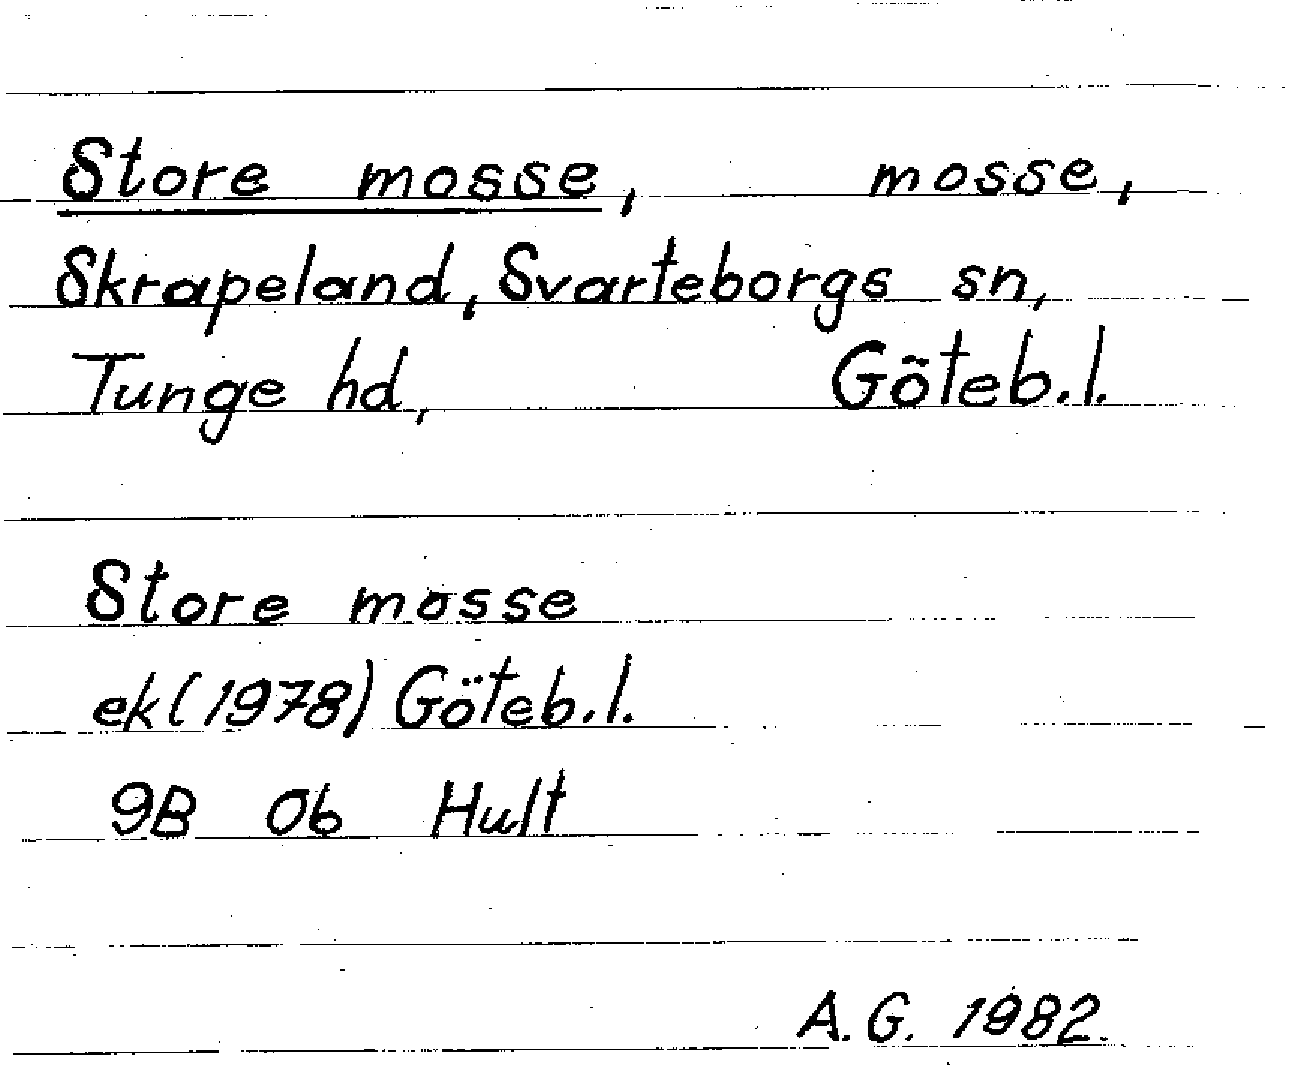 Store mosse, mosse,
Skrapeland, Svarteborgs sn,
Tunge hd, Göteb.l.
Store mosse
ek (1978) Göteb.l.
9B 0b Hult
A.G. 1982.